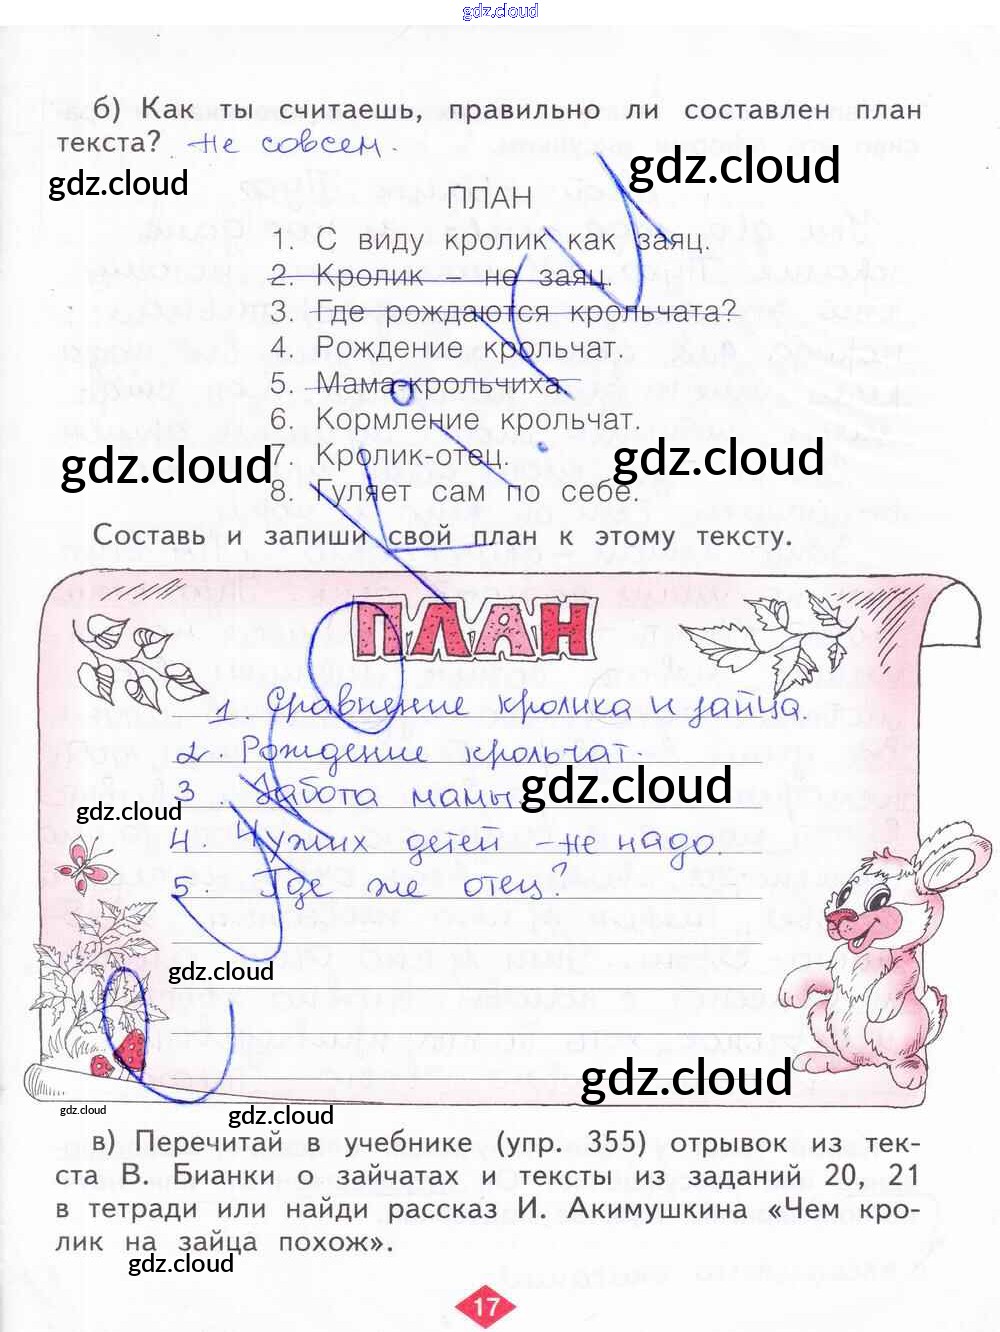 gdz.cloud
б) Как ты считаешь, правильно ли составлен план
текста? Не совсем.
gdz.cloud
gdz.cloud
ПЛАН
1. С виду кролик как заяц.
2. Кролик - не заяц.
3. Где рождаются крольчата?
4. Рождение крольчат.
5. Мама-крольчиха.
6. Кормление крольчат.
7. Кролик-отец.
gdz.cloud
gdz.cloud
8. Гуляет сам по себе.
Составь и запиши свой план к этому тексту.
ПЛАН
1 Сравнение кролика и зайца
2. Рождение крольчат
3. Забота мамы
gdz.cloud
gdz.cloud
4. Чужих детей - не надо
5. Где же отец?
gdz.cloud
gdz.cloud
gdz.cloud
gdz.cloud
в) Перечитай в учебнике (упр. 355) отрывок из тек-
ста В. Бианки о зайчатах и тексты из заданий 20, 21
в тетради или найди рассказ И. Акимушкина «Чем кро-
лик на зайца похож».
gdz.cloud
17